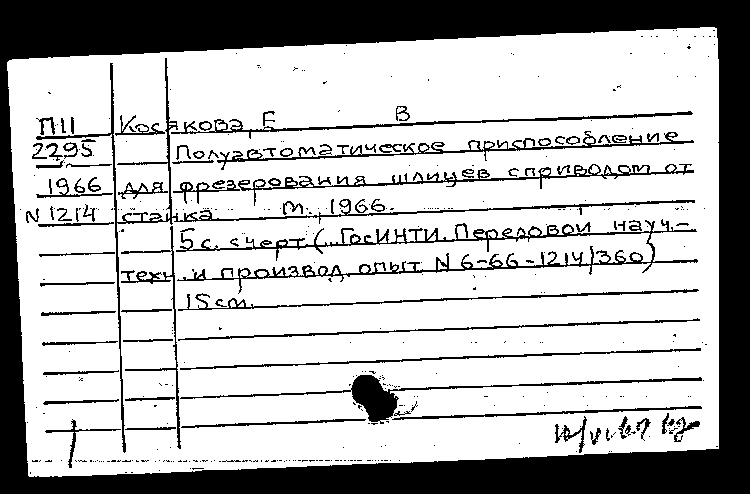 П11 Косякова, Е В
2295 Полуавтоматическое приспособление
1966 для фрезерования шлицев с приводом от
N 1214 станка. М., 1966.
5 с. с черт. (ГосИНТИ. Передовой науч.-
техн. и производ. опыт N 6-66-1214/360)
15 см.